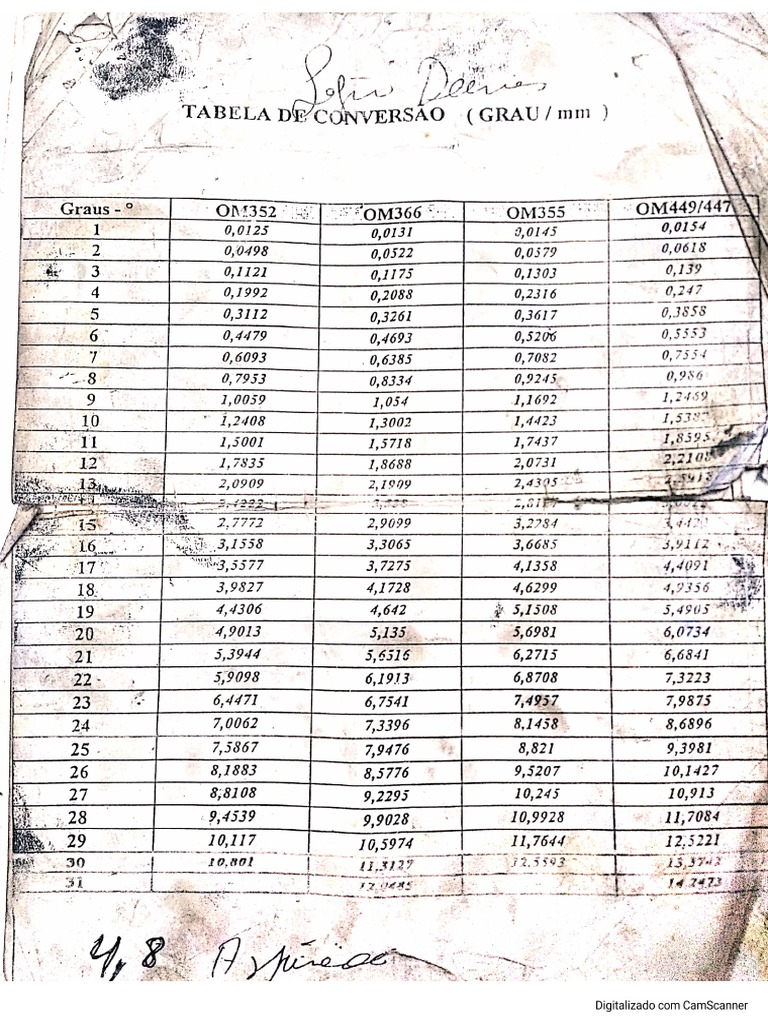 TABELA DE CONVERSÃO ( GRAU / mm )
Graus - º OM352 OM366 OM355 OM449/447
1 0,0125 0,0131 0,0145 0,0154
2 0,0498 0,0522 0,0579 0,0618
3 0,1121 0,1175 0,1303 0,139
4 0,1992 0,2088 0,2316 0,247
5 0,3112 0,3261 0,3617 0,3858
6 0,4479 0,4693 0,5206 0,5553
7 0,6093 0,6385 0,7082 0,7554
8 0,7953 0,8334 0,9245 0,986
9 1,0059 1,054 1,1692 1,2469
10 1,2408 1,3002 1,4423
11 1,5001 1,5718 1,7437 1,8595
12 1,7835 1,8688 2,0731
13 2,0909 2,1909 2,4305
15 2,7772 2,9099 3,2284
16 3,1558 3,3065 3,6685 3,9112
17 3,5577 3,7275 4,1358 4,4091
18 3,9827 4,1728 4,6299 4,9356
19 4,4306 4,642 5,1508 5,4905
20 4,9013 5,135 5,6981 6,0734
21 5,3944 5,6516 6,2715 6,6841
22 5,9098 6,1913 6,8708 7,3223
23 6,4471 6,7541 7,4957 7,9875
24 7,0062 7,3396 8,1458 8,6896
25 7,5867 7,9476 8,821 9,3981
26 8,1883 8,5776 9,5207 10,1427
27 8,8108 9,2295 10,245 10,913
28 9,4539 9,9028 10,9928 11,7084
29 10,117 10,5974 11,7644 12,5221
30 10,801 11,3127 12,5593
31
4,8
Digitalizado com CamScanner